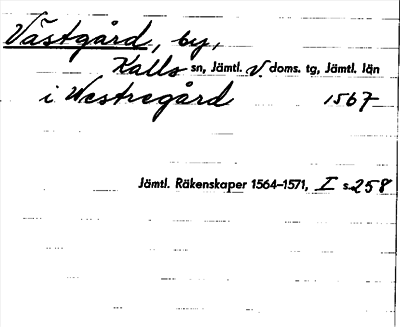 Västgård, by,
Kalls sn, Jämtl. V. doms. tg, Jämtl. län
i Westregård 1567
Jämtl. Räkenskaper 1564-1571, I s. 258